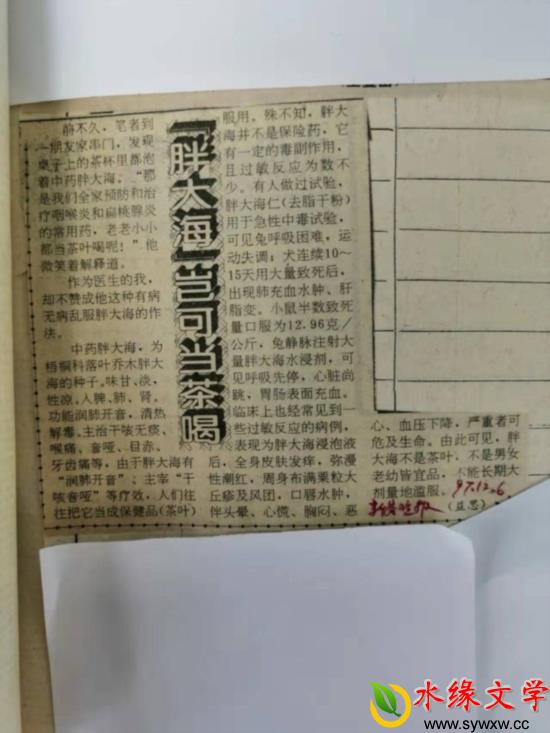 「胖大海」岂可当茶喝
前不久，笔者到
一朋友家串门，发现
桌子上的茶杯里都泡
着中药胖大海。“那
是我们全家预防和治
疗咽喉炎和扁桃腺炎
的常用药，老老小小
都当茶叶喝呢！”他
微笑着解释道。
作为医生的我，
却不赞成他这种有病
无病乱服胖大海的作
法。
中药胖大海，为
梧桐科落叶乔木胖大
海的种子。味甘、淡，
性凉，入脾、肺、肾。
功能润肺开音，清热
解毒。主治干咳无痰、
喉痛、音哑、目赤、
牙齿痛等，由于胖大海有
“润肺开音”；主宰“干
咳音哑”等疗效，人们往
往把它当成保健品(茶叶)
服用。殊不知，胖大
海并不是保险药，它
有一定的毒副作用，
且过敏反应为数不
少。有人做过试验，
胖大海仁(去脂干粉)
用于急性中毒试验，
可见兔呼吸困难，运
动失调；犬连续10～
15天用大量致死后，
出现肺充血水肿、肝
脂变。小鼠半数致死
量口服为12.96克／
公斤，兔静脉注射大
量胖大海水浸剂，可
见呼吸先停，心脏尚
跳，胃肠表面充血。
临床上也经常见到一
些过敏反应的病例，
表现为胖大海浸泡液
后，全身皮肤发痒，弥漫
性潮红，周身布满粟粒大
丘疹及风团，口唇水肿，
伴头晕、心慌、胸闷、恶
心、血压下降，严重者可
危及生命。由此可见，胖
大海不是茶叶，不是男女
老幼皆宜品，不能长期大
剂量地滥服。
97.12.6
晚报
水缘文学
www.sywxw.cc